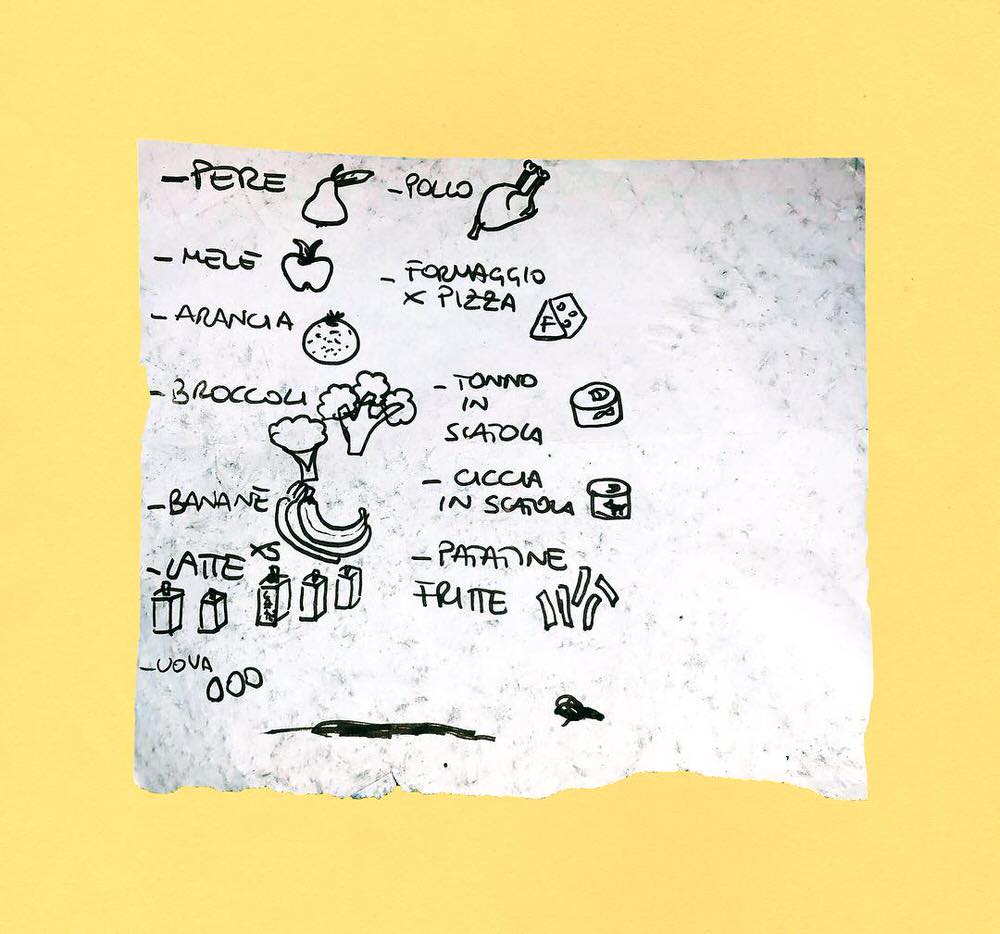 - PERE
- MELE
- ARANCIA
- BROCCOLI
- BANANE
- LATTE X5
- UOVA
- POLLO
- FORMAGGIO
X PIZZA
F
- TONNO
IN
SCATOLA
- CICCIA
IN SCATOLA
- PATATINE
FRITTE